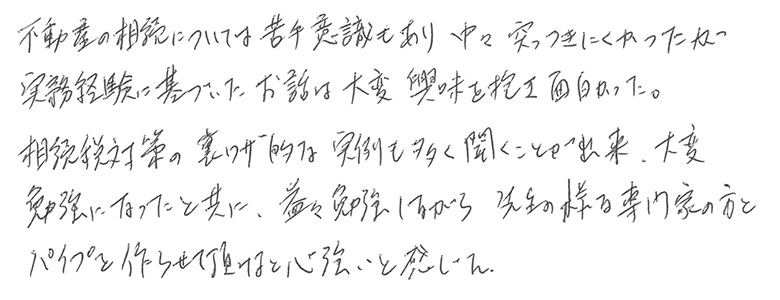 不動産の相続については苦手意識もあり 中々 突っつきにくかったが
実務経験に基づいたお話は大変 興味を抱き面白かった。
相続税対策の裏ワザ的な実例も多く聞くことが出来、大変
勉強になったと共に、益々勉強しながら 先生の様な専門家の方と
パイプを作らせて頂けると心強いと感じた.